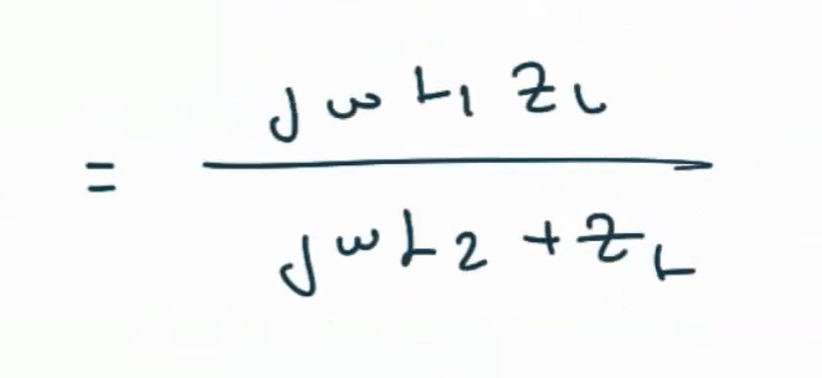 = jωL₁ Z_L
jωL₂ + Z_L